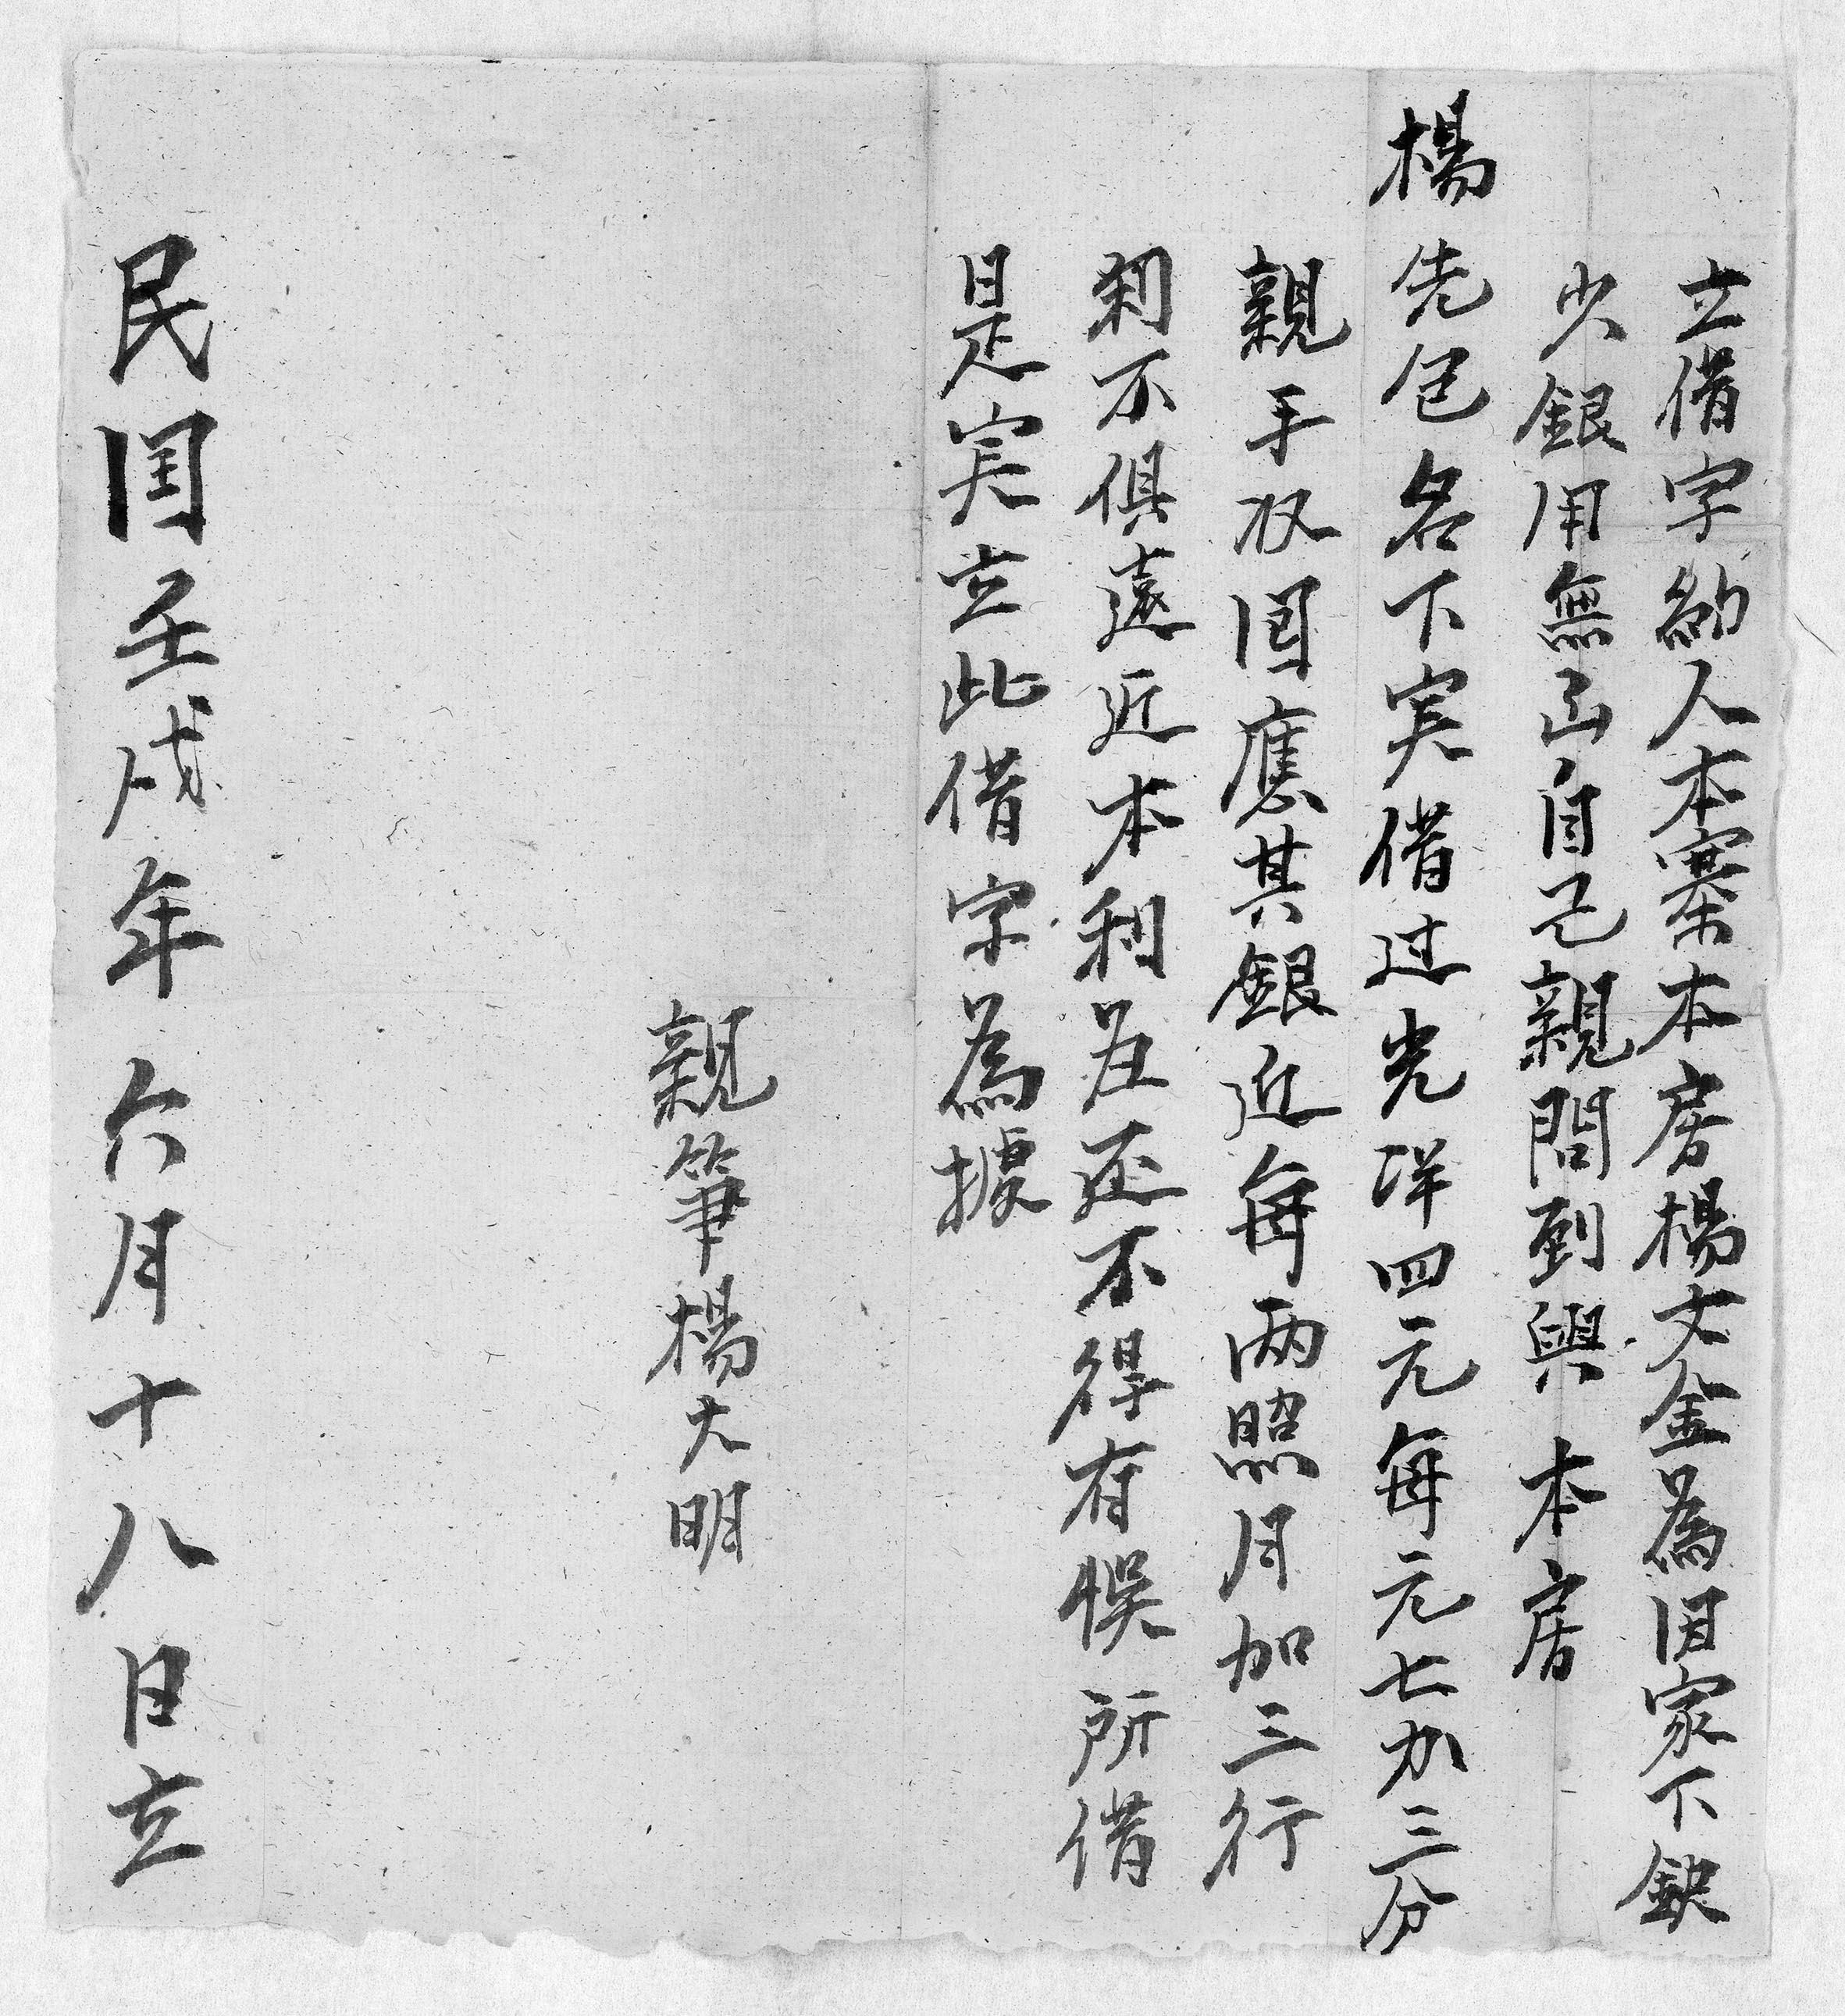 立借字約人本寨本房楊文金為因家下缺
少銀用無出自己親問到與本房
楊先包名下実借过光洋四元每元七分三分
親手收囯應其銀近每両照月加三行
利不俱遠近本利並还不得有悮所借
是実立此借字為據
親筆楊大明
民囯壬戌年六月十八日立